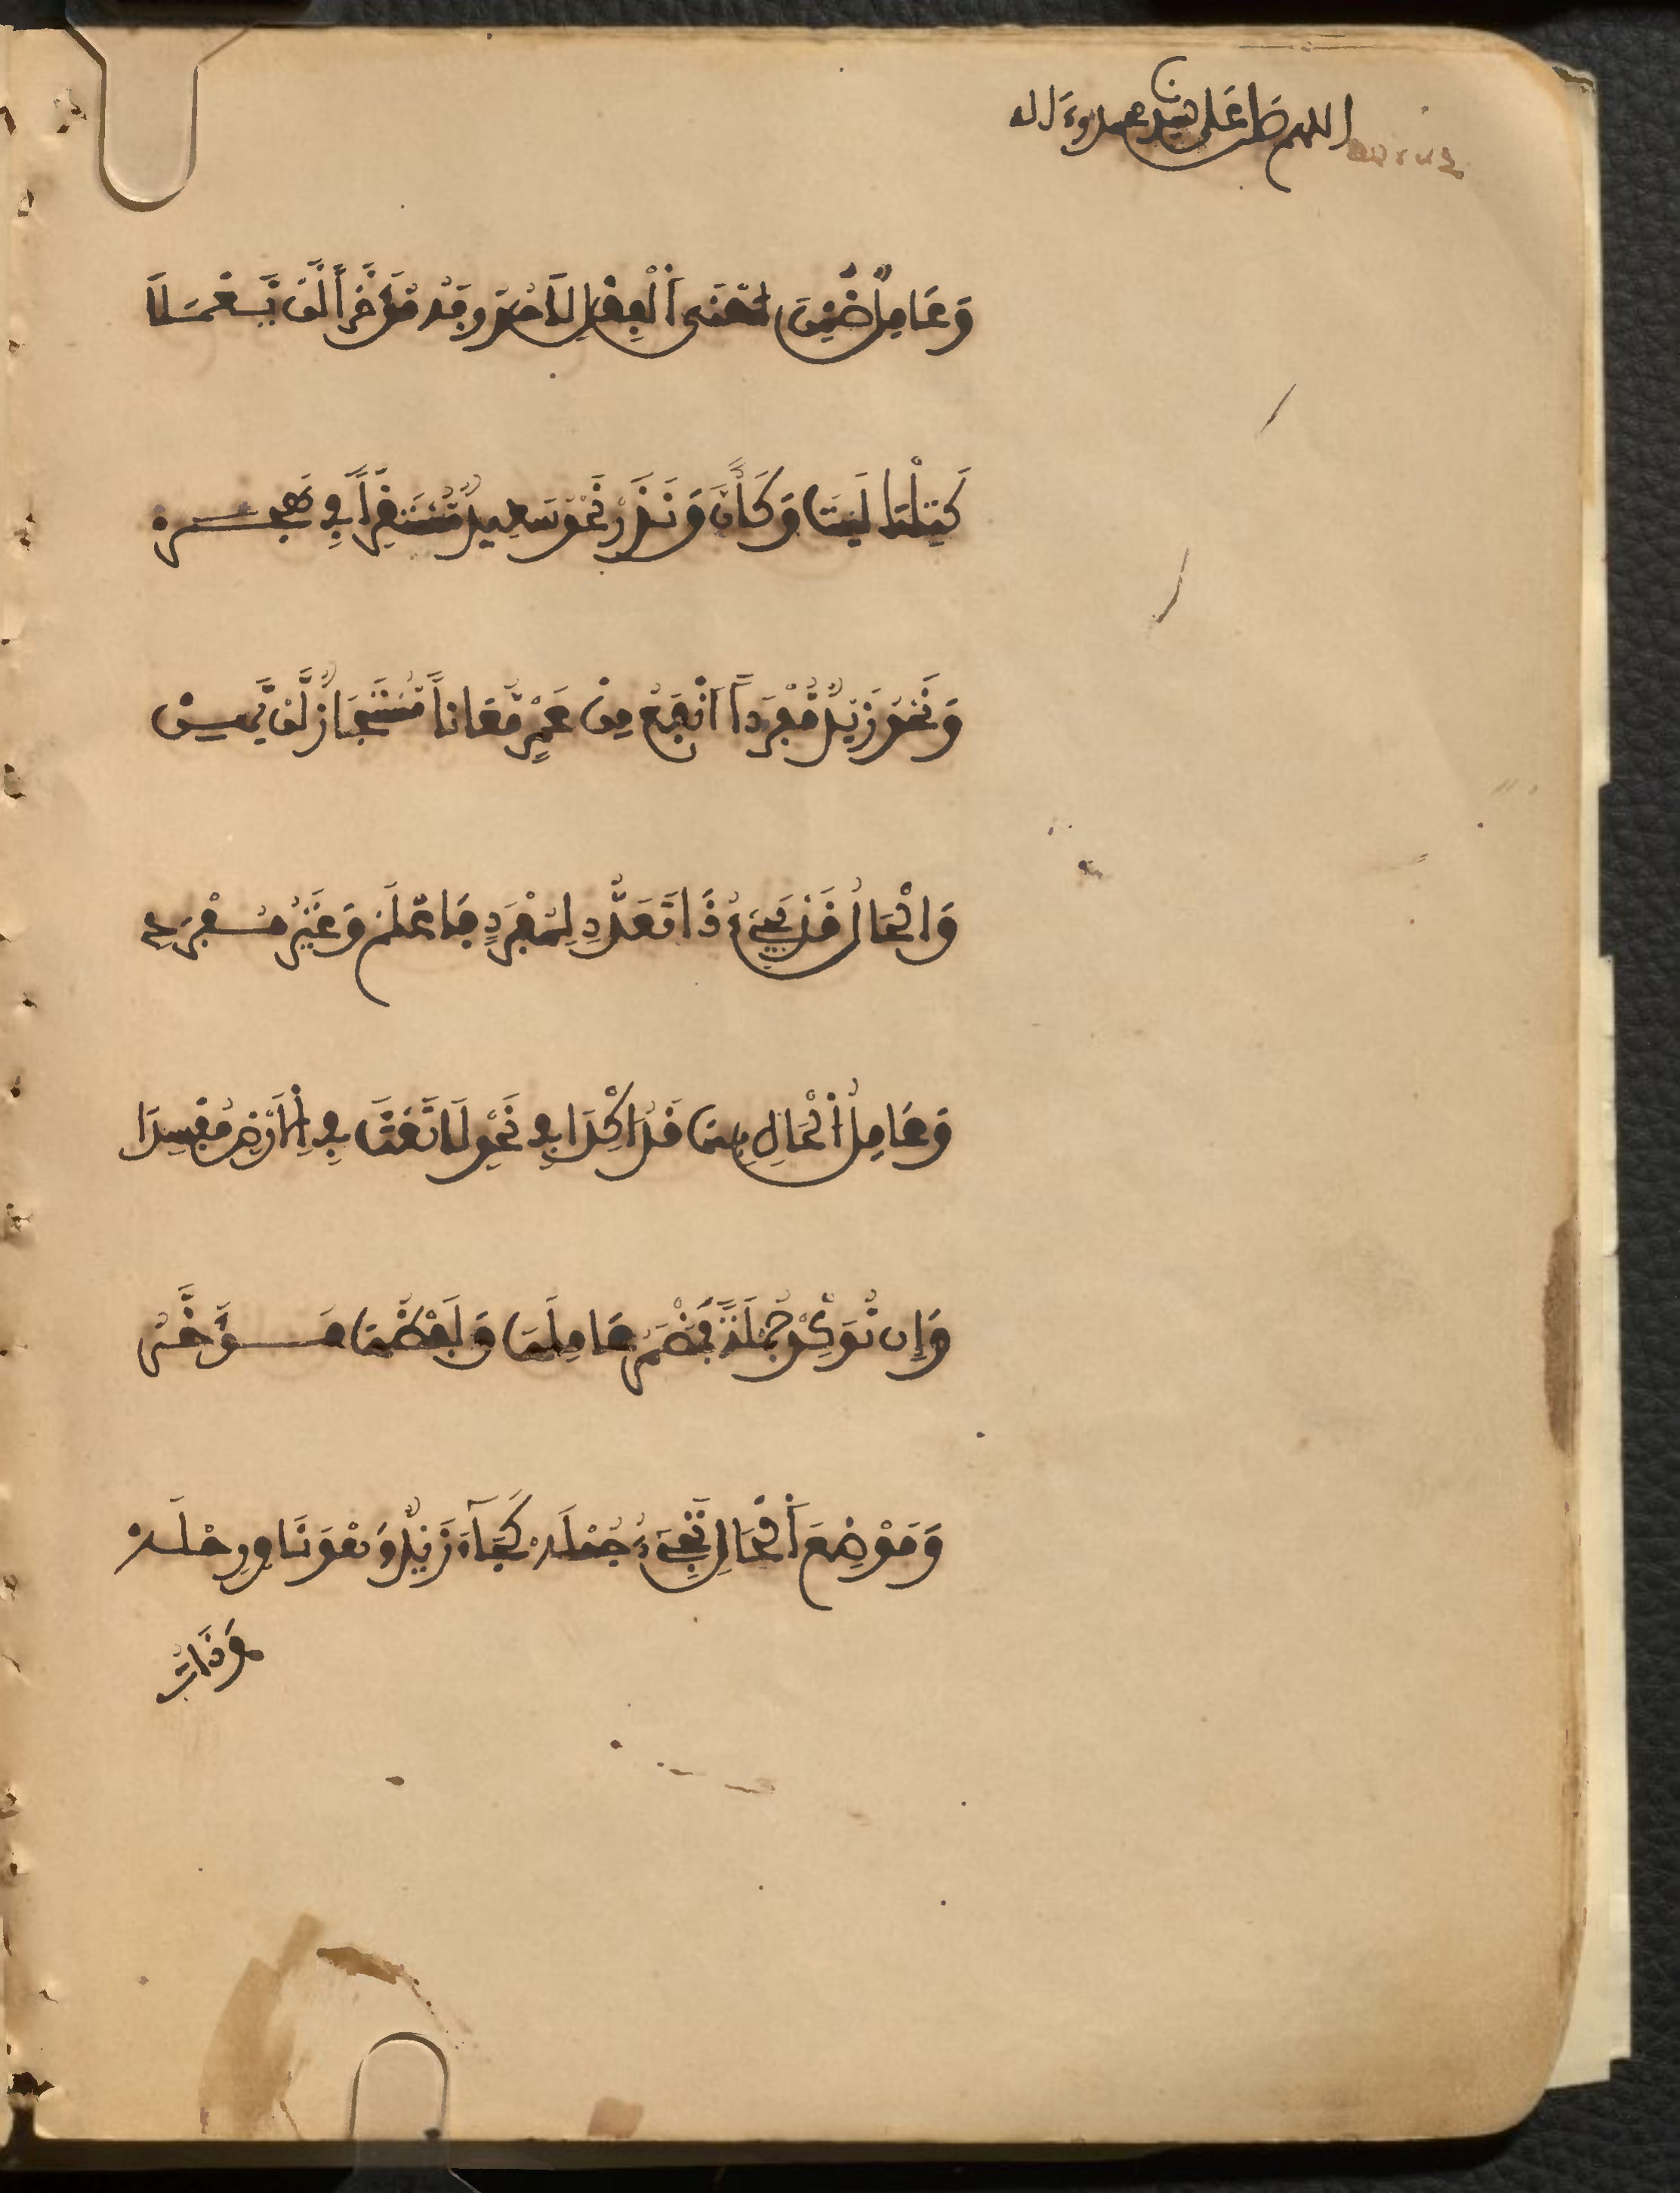 اللهم صل على سيدنا محمد وءاله
وَعَامِلٌ ضُمِّنَ مَعْنَى اَلْفِعْلِ لاَ حُرُوفَهُ مُؤَخَّراً لَنْ يَّعْمَلاَ
كَتِلْكَ لَيْتَ وَكَأَنَّ وَنَدَرْ نَحْوُ سَعِيدٌ مُّسْتَقِرّاً فِي هَجَرْ
وَنَحْوُ زَيْدٌ مُّفْرَداً اَنْفَعُ مِنْ عَمْرٍ مُّعَاناً مُّسْتَجَازٌ لَّنْ يَّهِنْ
وَالْحَالُ قَدْ يَجِيءُ ذَا تَعَدُّدِ لِمُفْرَدٍ فَاعْلَمْ وَغَيْرِ مُفْرَدِ
وَعَامِلُ اَلْحَالِ بِهَا قَدُ اكِّدَا فِي نَحْوِ لَا تَعْثَ فِي اِلَارْضِ مُفْسِدَا
وَإِن تُوَكِّدْ جُمْلَةً فَمُضْمَرُ عَامِلُهَا وَلَفْظُهَا مُؤَخَّرُ
وَمَوْضِعَ اَلْحَالِ تَجِيءُ جُمْلَهْ كَجَاءَ زَيْدٌ وَهُوَ نَاوٍ رِحْلَهْ
وَذَاتُ